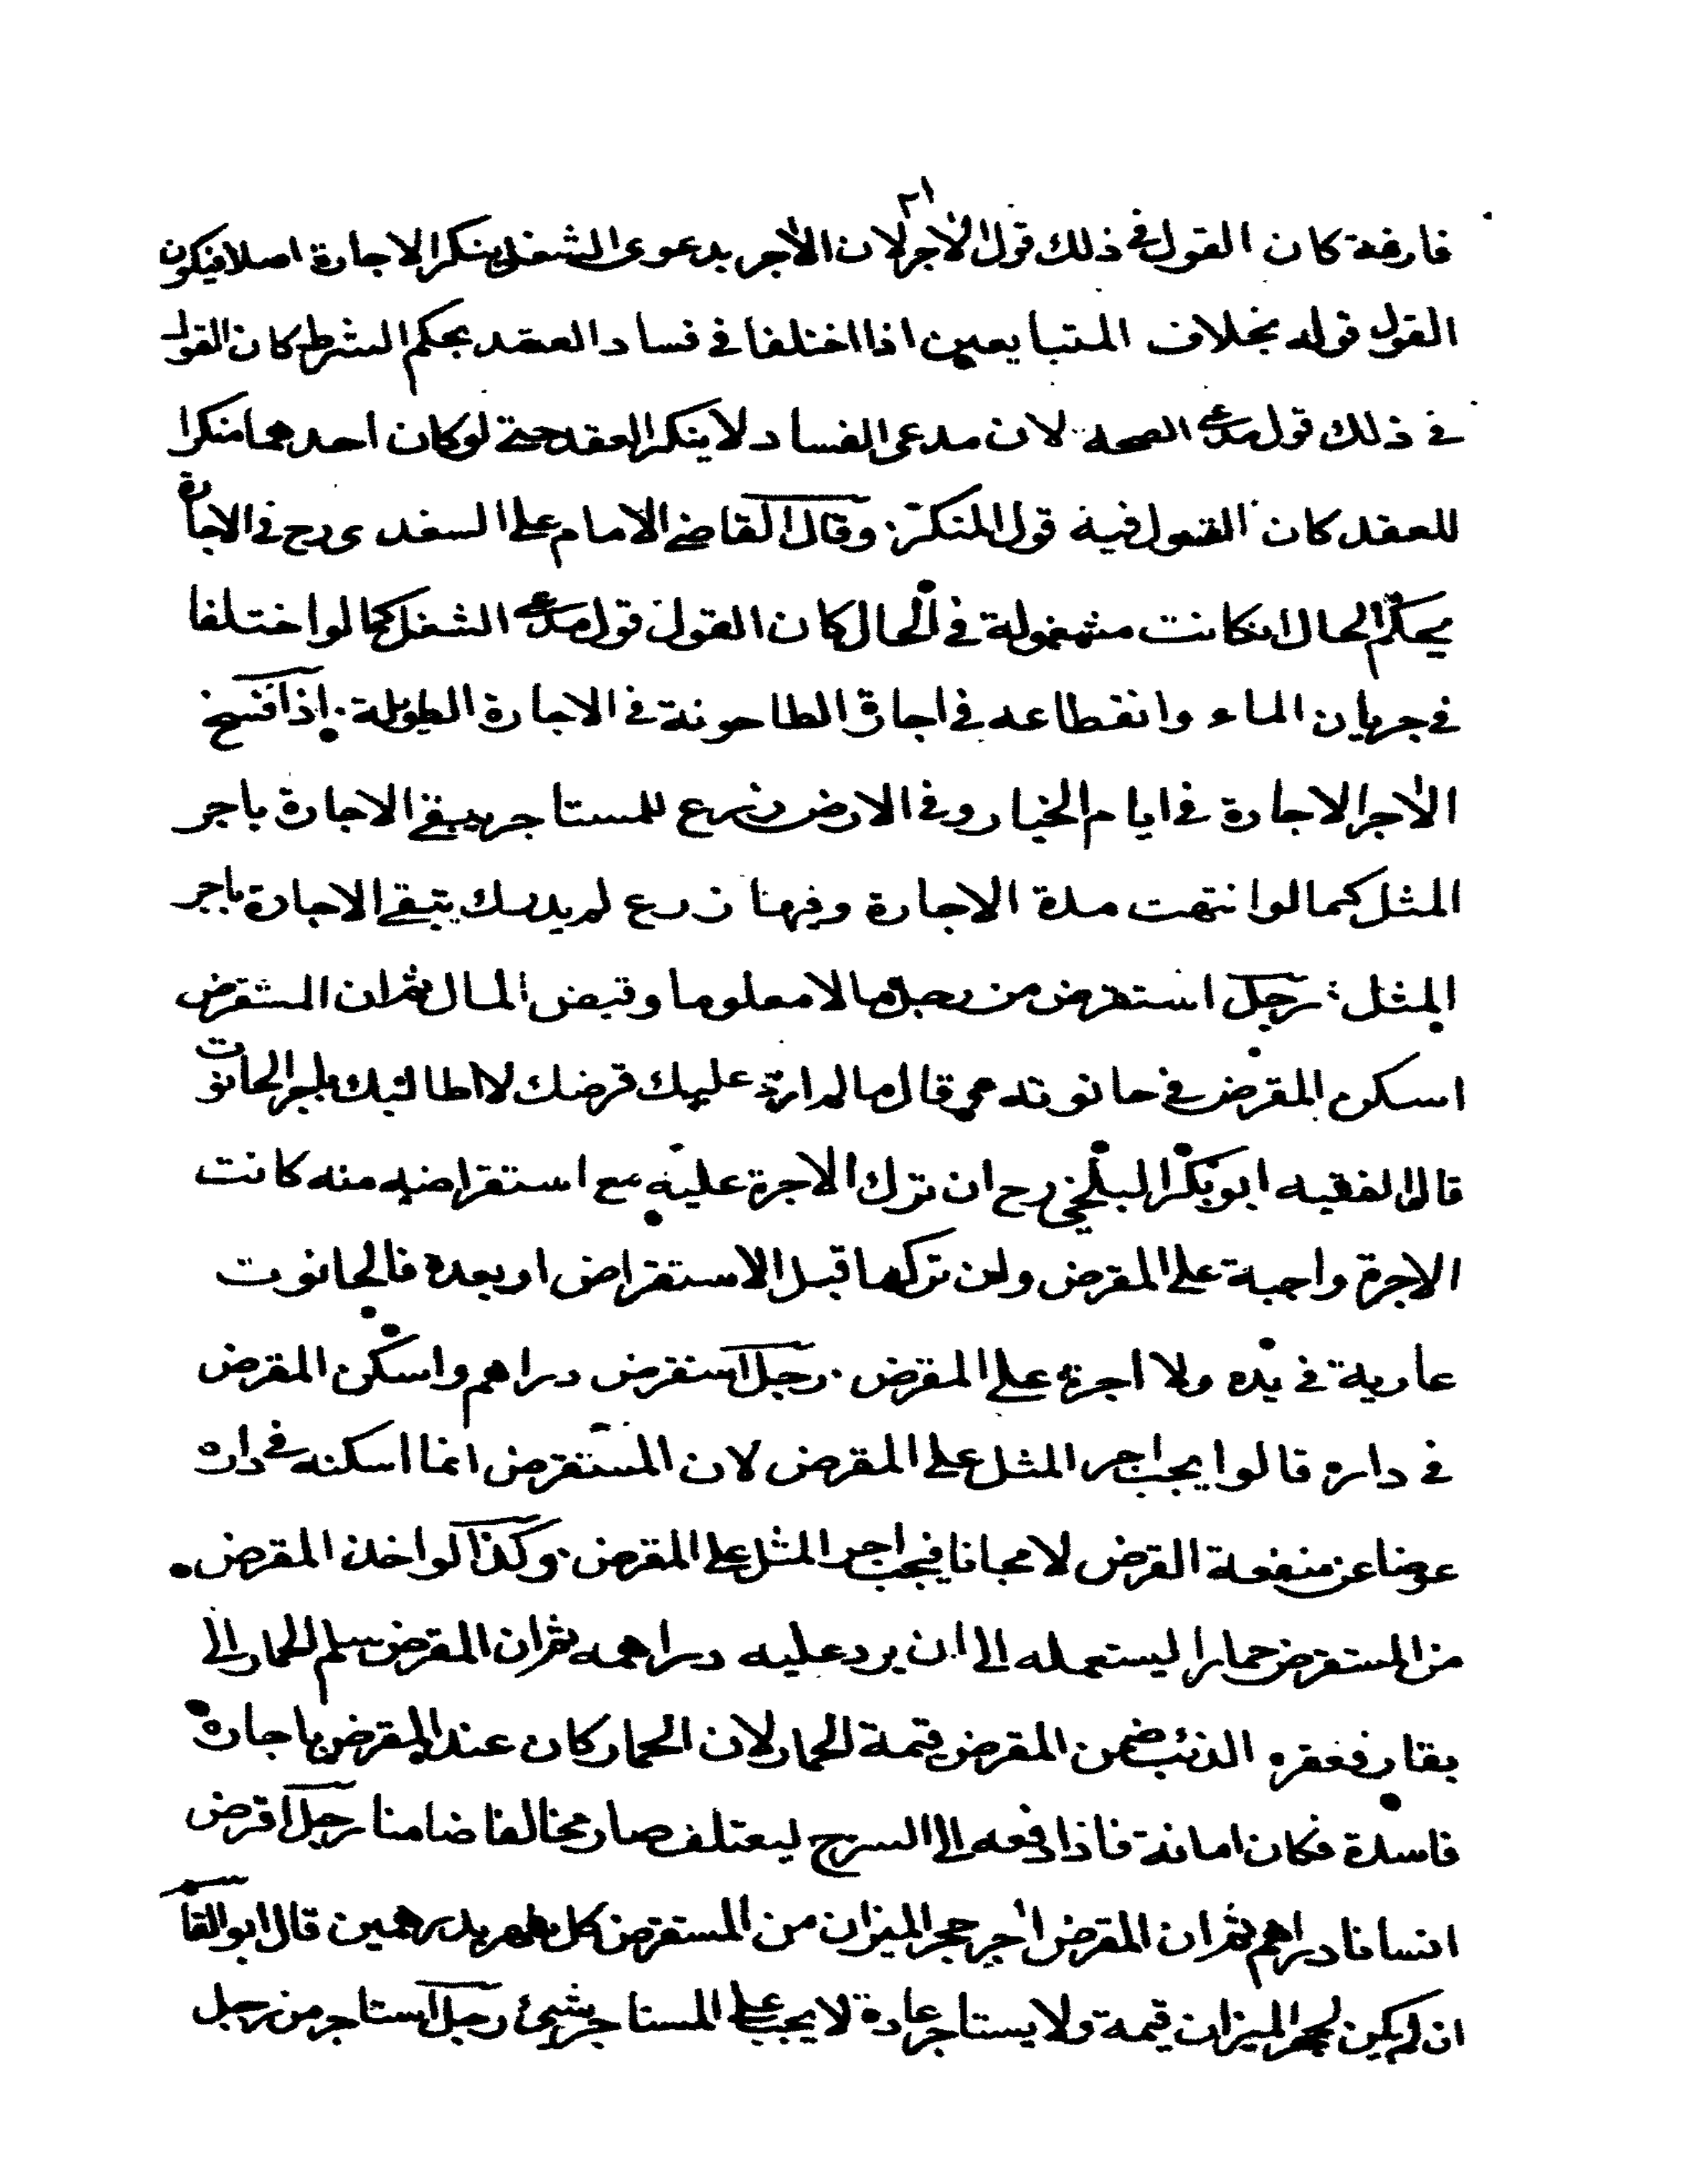 ٢١
فارغة كان القول في ذلك قول الآجر لان الآجر بدعوى الشغل ينكر الاجارة اصلا فيكون
القول قوله بخلاف المتبايعين اذا اختلفا في فساد العقد بحكم الشرط كان القول
في ذلك قول مدعى الصحة لان مدعى الفساد لا ينكر العقد حتى لو كان احدهما منكرا
للعقد كان القول فيه قول المنكر وقال القاضي الامام على السغدى رح في الاجارة
يحكم الحال ان كانت مشغولة في الحال كان القول قول مدعى الشغل كما لو اختلفا
في جريان الماء وانقطاعه في اجارة الطاحونة في الاجارة الطويلة اذا فسخ
الآجر الاجارة في ايام الخيار وفي الارض زرع للمستاجر يبقى الاجارة باجر
المثل كما لو انتهت مدة الاجارة وفيها زرع لم يدرك يتبقى الاجارة باجر
المثل رجل استقرض من رجل مالا معلوما وقبض المال ثم ان المستقرض
اسكن المقرض في حانوته قال ما لم ارد عليك قرضك لا اطالبك باجر الحانوت
قال الفقيه ابو بكر البلخي رح ان ترك الاجرة عليه مع استقراضه منه كانت
الاجرة واجبة على المقرض وان تركها قبل الاستقراض او بعده فالحانوت
عارية في يده ولا اجرة على المقرض رجل استقرض دراهم واسكن المقرض
في داره قالوا يجب اجر المثل على المقرض لان المستقرض انما اسكنه في داره
عوضا عن منفعة القرض لا مجانا فيجب اجر المثل على المقرض وكذا لو اخذ المقرض
من المستقرض حمارا ليستعمله الى ان يرد عليه دراهمه ثم ان المقرض سلم الحمار الى
بقار فعقره الذئب ضمن المقرض قيمة الحمار لان الحمار كان عند المقرض باجارة
فاسدة فكان امانة فاذا دفعه الى السرح ليعتلف صار مخالفا ضامنا رجل اقرض
انسانا دراهم ثم ان المقرض آجر حجر الميزان من المستقرض كل شهر بدرهمين قال ابو القاسم
ان لم يكن لحجر الميزان قيمة ولا يستاجر عادة لا يجب على المستاجر شيئ رجل استاجر من رجل